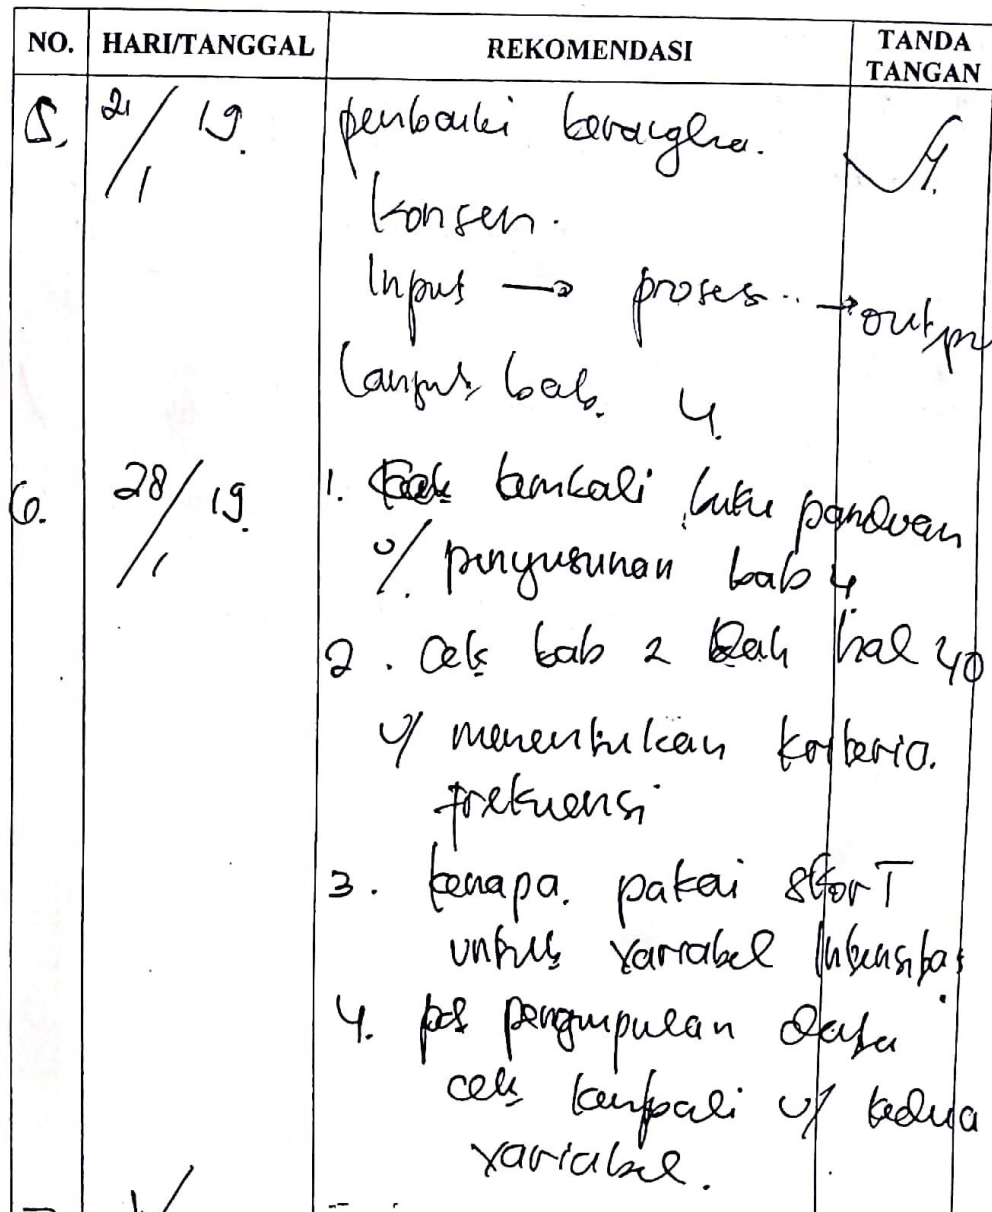 NO. HARI/TANGGAL REKOMENDASI TANDA TANGAN
5. 21/1 19. perbaiki kerangka.
konsen.
Input → proses → output
lanjut bab. 4.
6. 28/1 19. 1. Cek kembali buku panduan
u/ penyusunan bab 4
2. Cek bab 2 hal 40
u/ menentukan kriteria.
frekuensi
3. kenapa. pakai skor T
untuk variabel Intensitas
4. pengumpulan data
cek kembali u/ kedua
variabel.